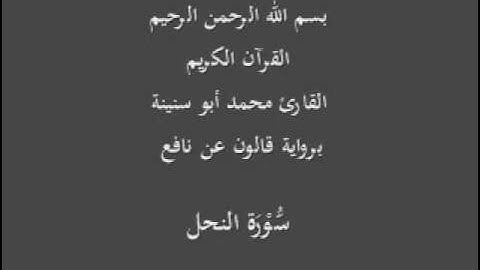 بسم الله الرحمن الرحيم
القرآن الكريم
القارئ محمد أبو سنينة
برواية قالون عن نافع
سُّوْرَة النحل